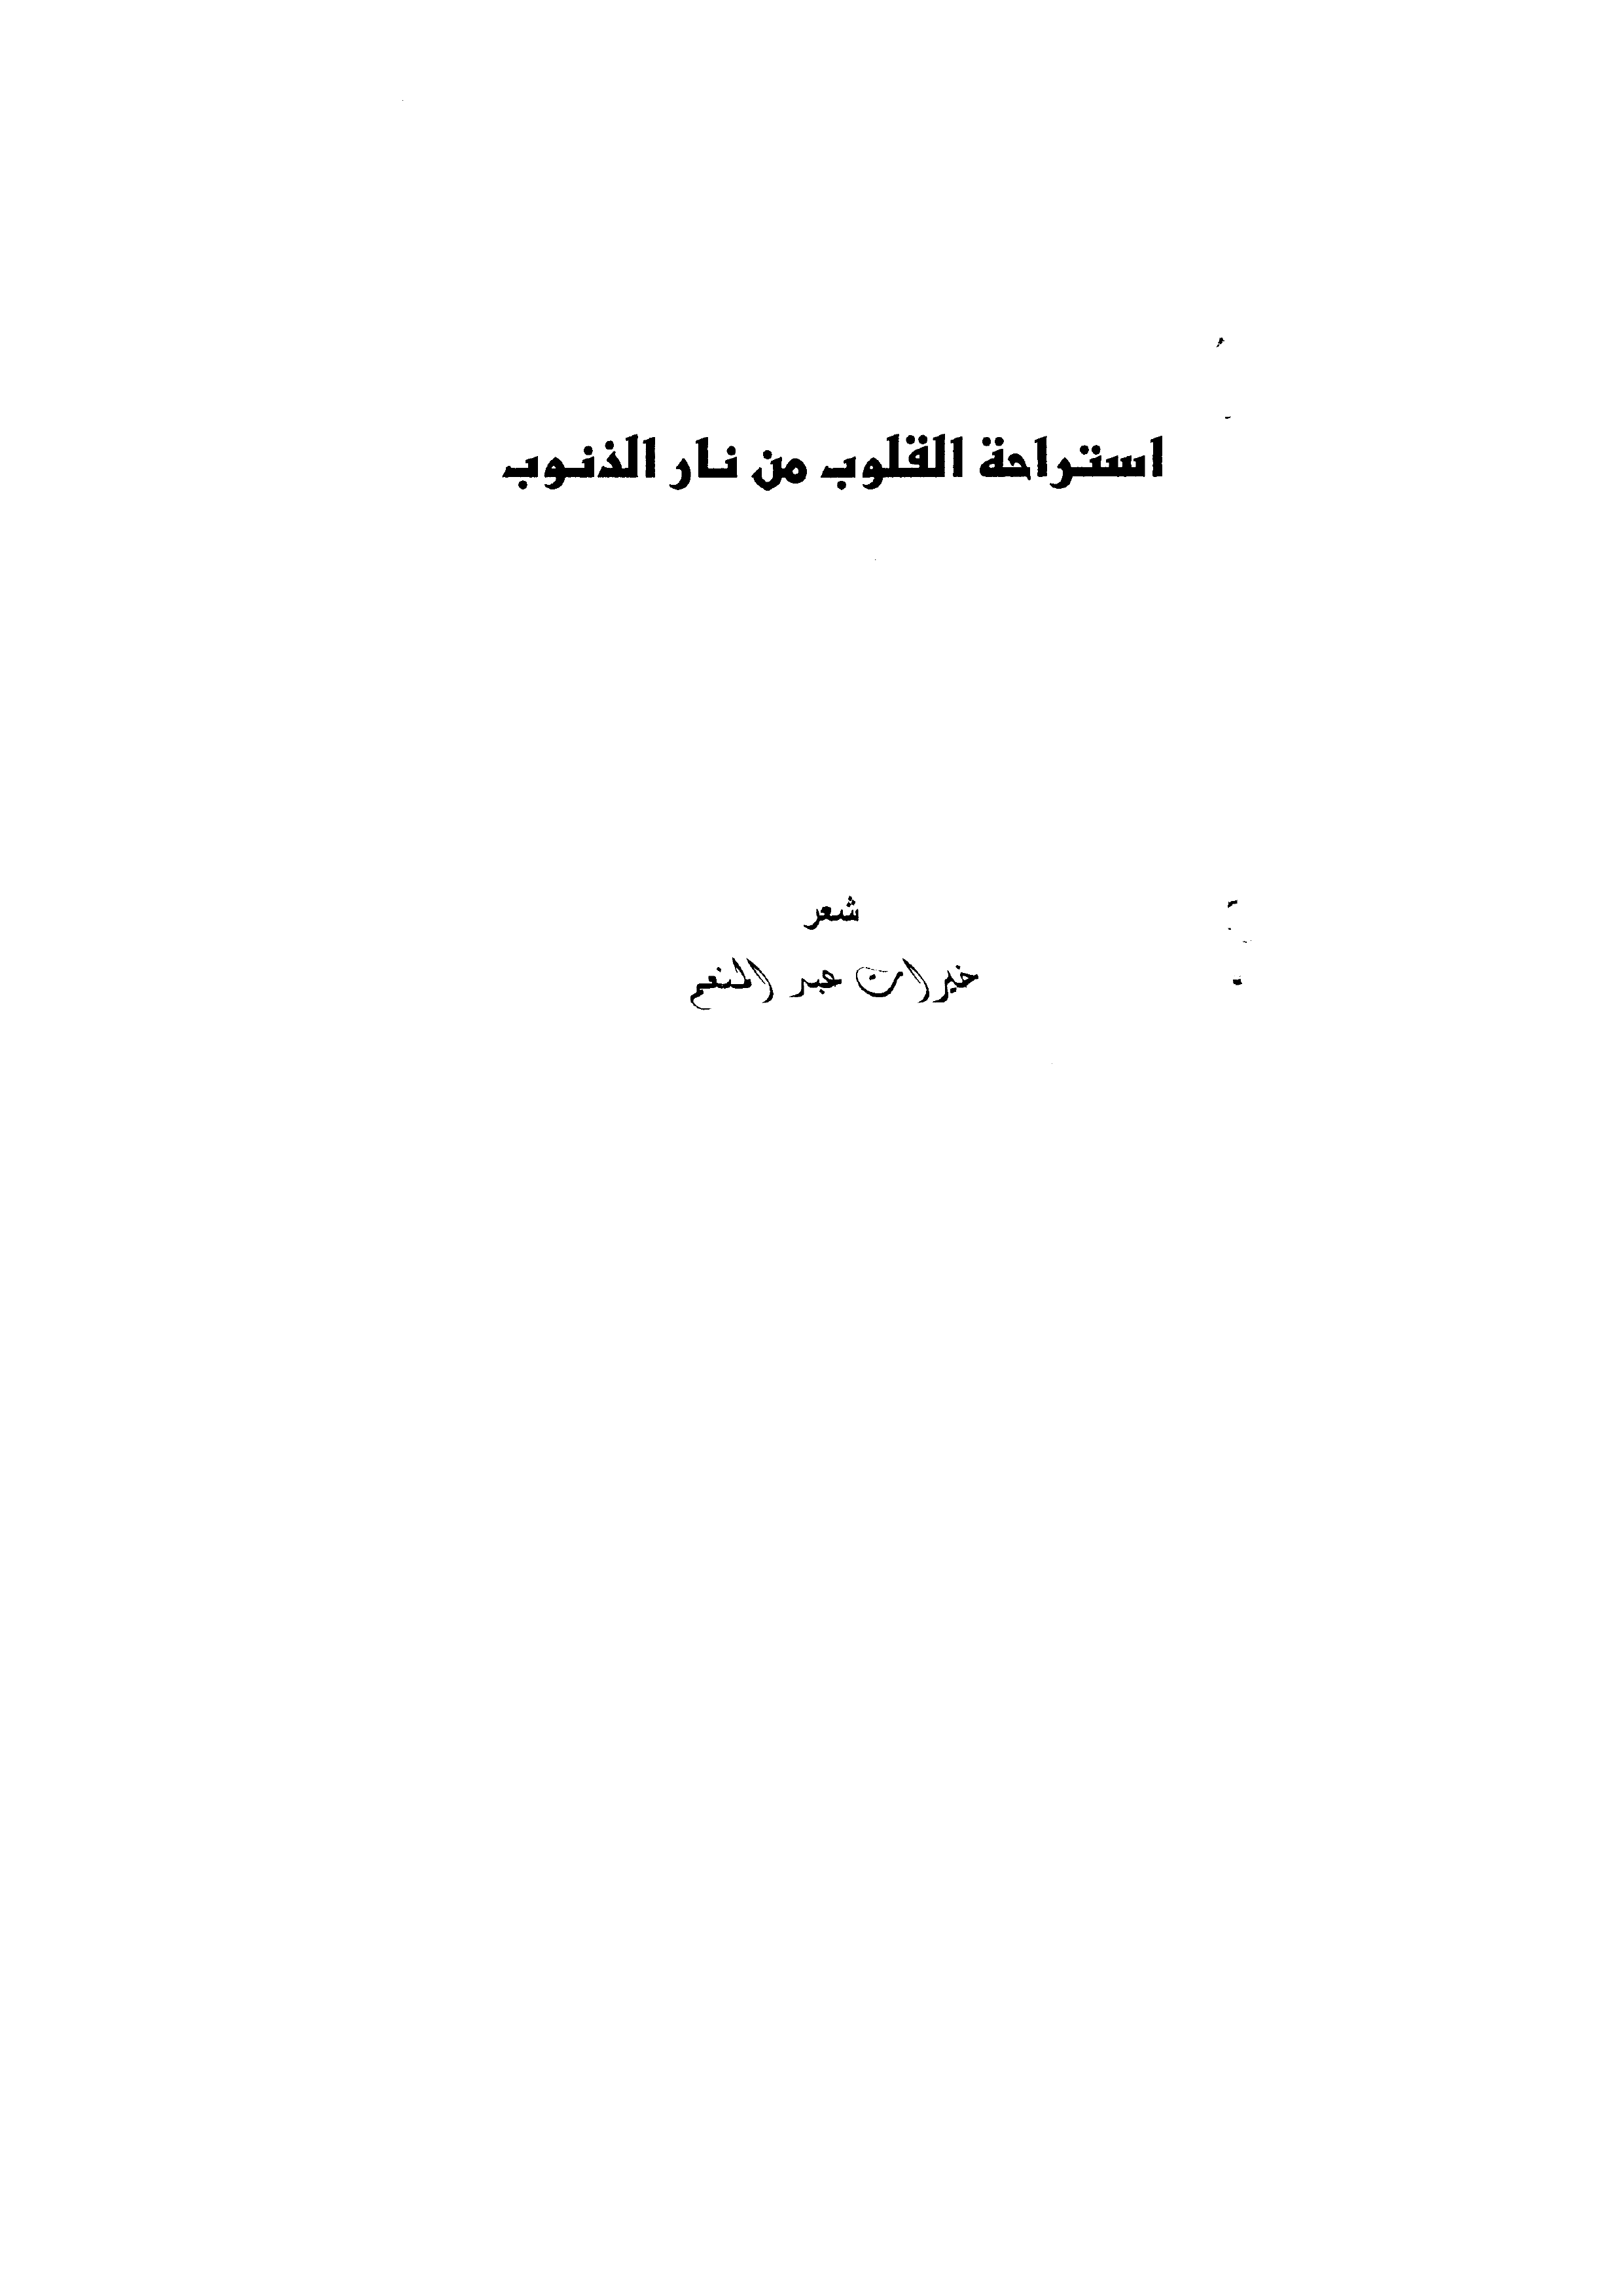 استراحة القلوب من نار الذنوب
شعر
خيرات عبد المنعم